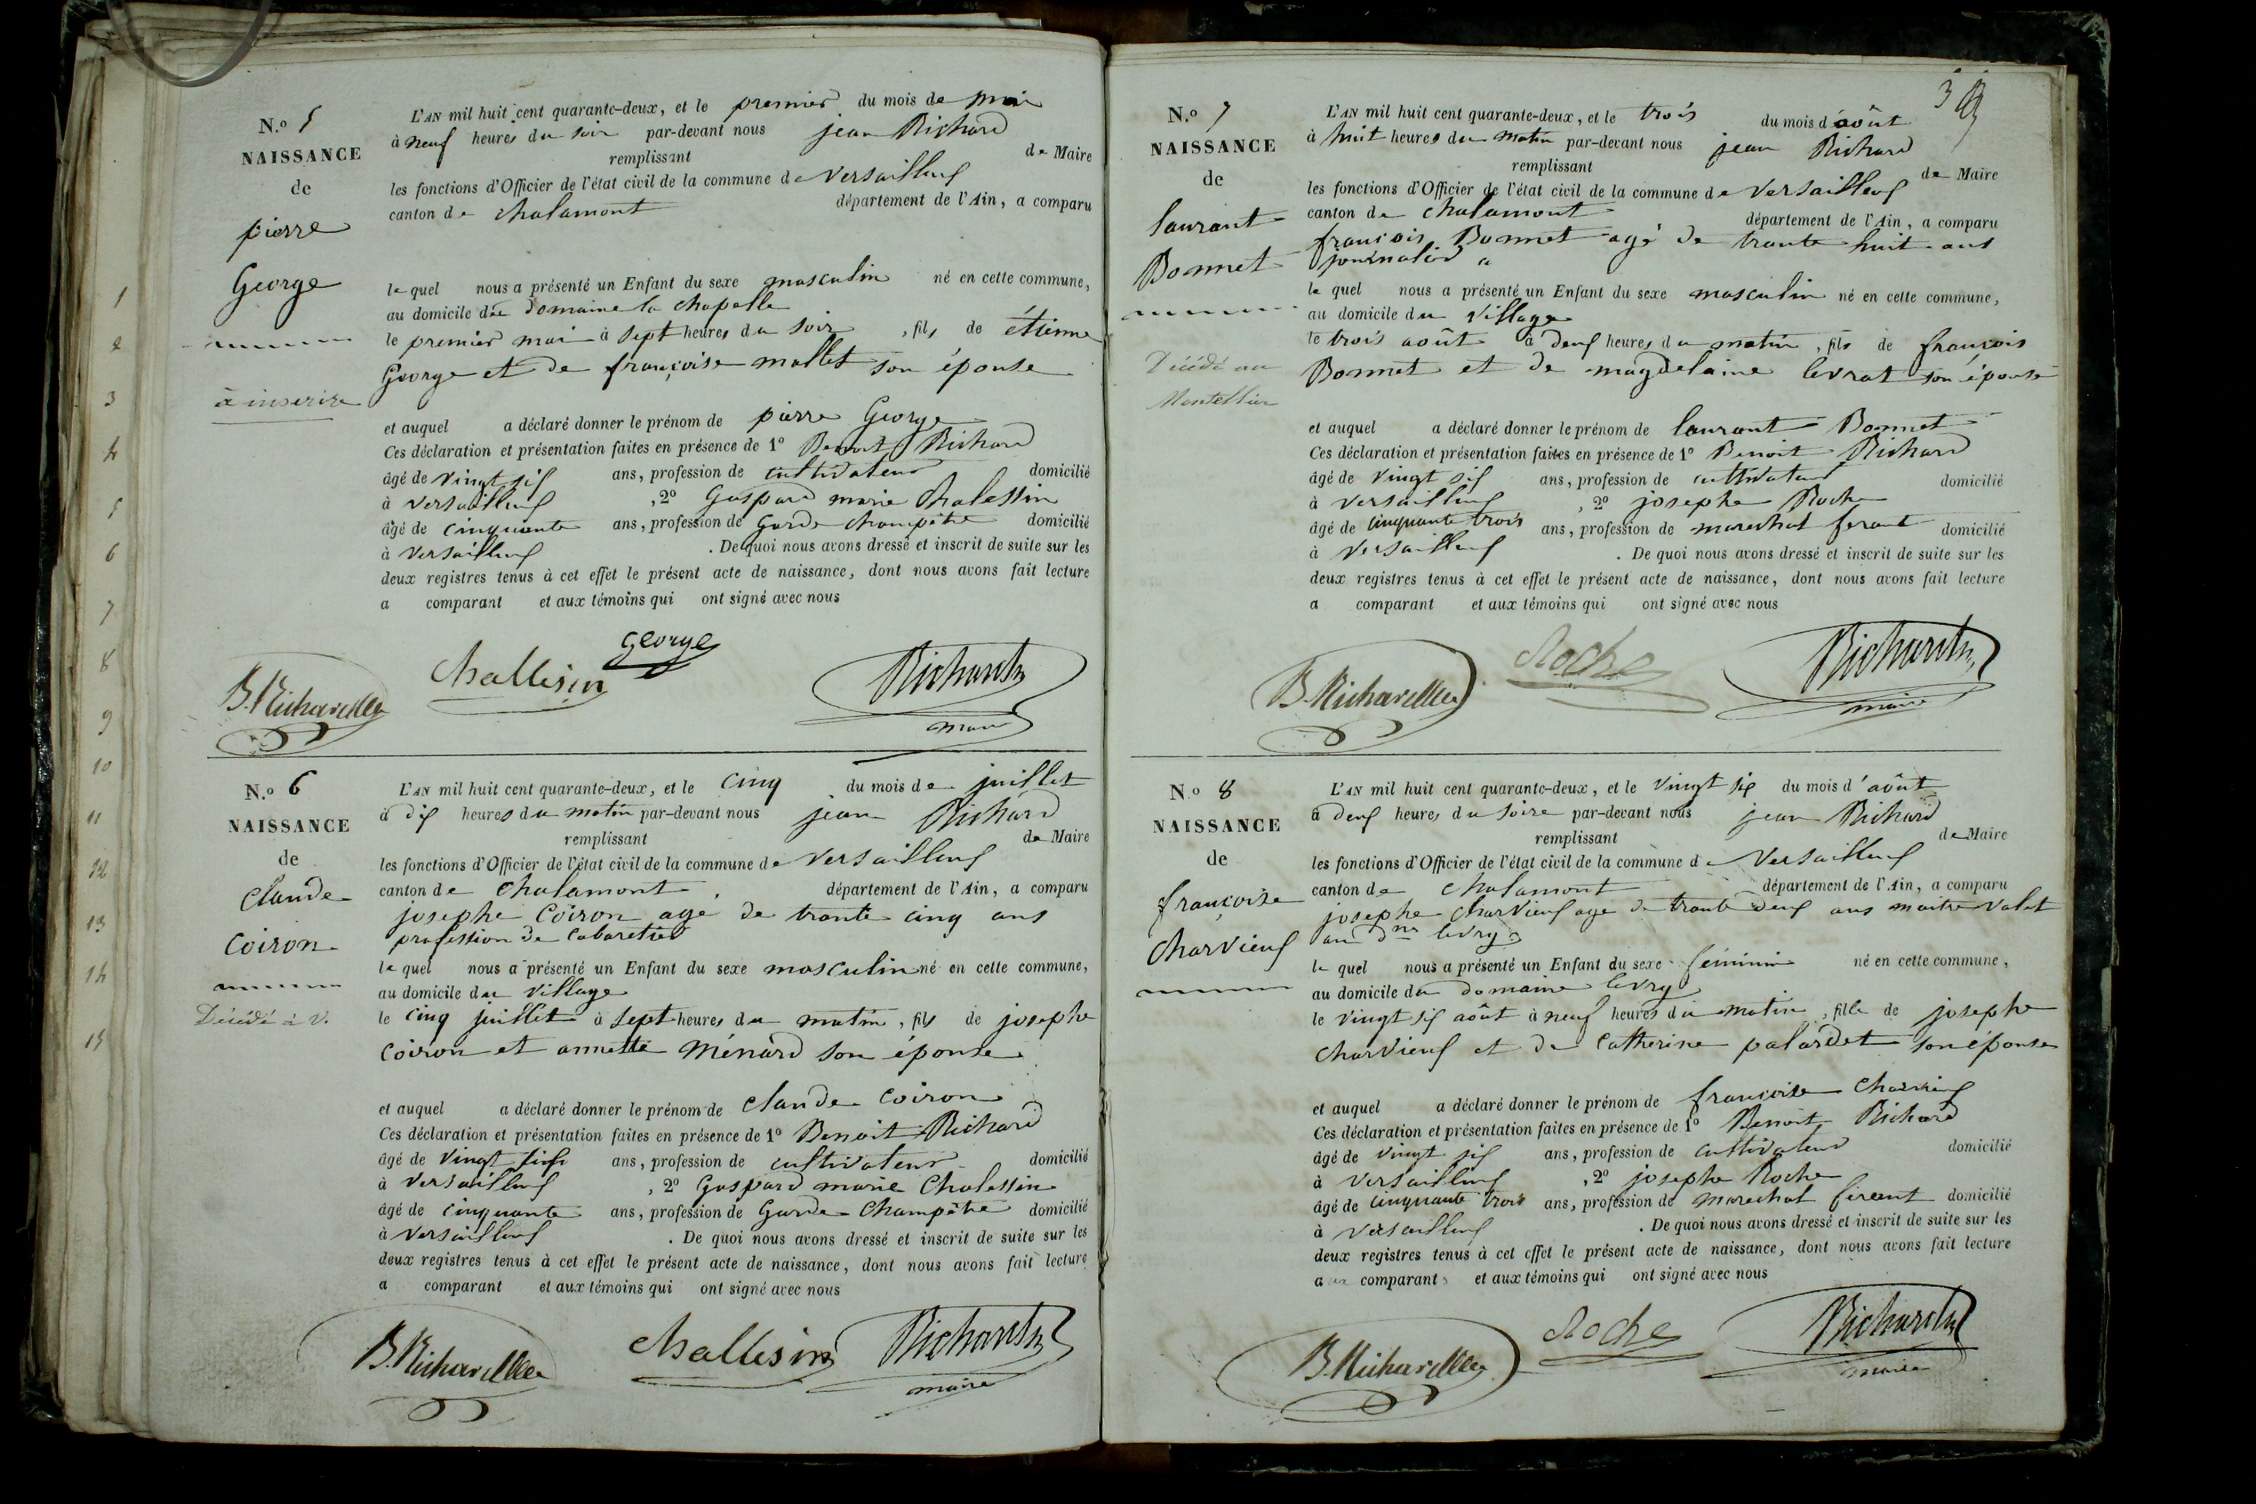 1
2
3
4
5
6
7
8
9
10
11
12
13
14
15
N.o 5
NAISSANCE
de
pierre
George
à inscrire
L'AN mil huit cent quarante-deux, et le premier du mois de mai
à neuf heures du soir par-devant nous jean Richard
remplissant de Maire
les fonctions d'Officier de l'état civil de la commune de Versailleux
canton de chalamont département de l'Ain, a comparu
le quel nous a présenté un Enfant du sexe masculin né en cette commune,
au domicile du domaine la chapelle
le premier mai à sept heures du soir, fils de étienne
George et de françoise mallet son épouse
et auquel a déclaré donner le prénom de pierre George
Ces déclaration et présentation faites en présence de 1º Benoit Richard
âgé de vingt six ans, profession de cultivateur domicilié
à Versailleux, 2º Gaspard marie Chalessin
âgé de cinquante ans, profession de Garde champêtre domicilié
à Versailleux. De quoi nous avons dressé et inscrit de suite sur les
deux registres tenus à cet effet le présent acte de naissance, dont nous avons fait lecture
a comparant et aux témoins qui ont signé avec nous
George
Challesin
Richard
B. Richard
maire
N.o 6
NAISSANCE
de
Claude
Coiron
Décédé à V.
L'AN mil huit cent quarante-deux, et le cinq du mois de juillet
à dix heures du matin par-devant nous jean Richard
remplissant de Maire
les fonctions d'Officier de l'état civil de la commune de Versailleux
canton de Chalamont département de l'Ain, a comparu
josephe Coiron agé de trente cinq ans
profession de Cabaretier
le quel nous a présenté un Enfant du sexe masculin né en cette commune,
au domicile du village
le cinq juillet à sept heures du matin, fils de josephe
Coiron et annette Ménard son épouse
et auquel a déclaré donner le prénom de Claude Coiron
Ces déclaration et présentation faites en présence de 1º Benoit Richard
âgé de vingt ans, profession de cultivateur domicilié
à Versailleux, 2º Gaspard marie Chalessin
âgé de cinquante ans, profession de Garde Champêtre domicilié
à Versailleux. De quoi nous avons dressé et inscrit de suite sur les
deux registres tenus à cet effet le présent acte de naissance, dont nous avons fait lecture
a comparant et aux témoins qui ont signé avec nous
B. Richard Challesin Richard
maire
3
N.o 7
NAISSANCE
de
laurant
Bonnet
Décédé au
Montellier
L'AN mil huit cent quarante-deux, et le trois du mois d'août
à huit heures du matin par-devant nous jean Richard
remplissant de Maire
les fonctions d'Officier de l'état civil de la commune de Versailleux
canton de Chalamont département de l'Ain, a comparu
françois Bonnet agé de trente huit ans
journalier
le quel nous a présenté un Enfant du sexe masculin né en cette commune,
au domicile du village
le trois août à deux heures du matin, fils de françois
Bonnet et de magdelaine levrat son épouse
et auquel a déclaré donner le prénom de laurant Bonnet
Ces déclaration et présentation faites en présence de 1º Benoit Richard
âgé de vingt six ans, profession de cultivateur domicilié
à Versailleux, 2º josephe Roche
âgé de cinquante trois ans, profession de marechal ferant domicilié
à Versailleux. De quoi nous avons dressé et inscrit de suite sur les
deux registres tenus à cet effet le présent acte de naissance, dont nous avons fait lecture
a comparant et aux témoins qui ont signé avec nous
B. Richard Roche Richard
maire
N.o 8
NAISSANCE
de
françoise
Charvieux
L'AN mil huit cent quarante-deux, et le vingt six du mois d'août
à deux heures du soire par-devant nous jean Richard
remplissant de Maire
les fonctions d'Officier de l'état civil de la commune de Versailleux
canton de Chalamont département de l'Ain, a comparu
josephe charvieux age de trente deux ans maitre valet
au dne levry
le quel nous a présenté un Enfant du sexe féminin né en cette commune,
au domicile du domaine levry
le vingt six août à neuf heures du matin, fille de josephe
Charvieux et de Catherine palardet son épouse
et auquel a déclaré donner le prénom de françoise Charvieux
Ces déclaration et présentation faites en présence de 1º Benoit Richard
âgé de vingt six ans, profession de cultivateur domicilié
à Versailleux, 2º josephe Roche
âgé de cinquante trois ans, profession de marechal ferant domicilié
à Versailleux. De quoi nous avons dressé et inscrit de suite sur les
deux registres tenus à cet effet le présent acte de naissance, dont nous avons fait lecture
aux comparants et aux témoins qui ont signé avec nous
B. Richard Roche Richard
maire